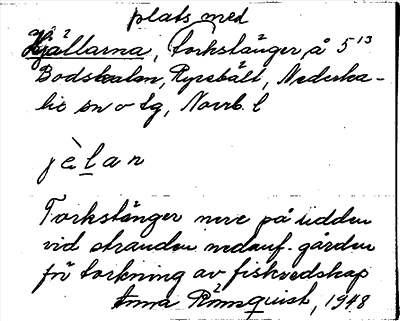 plats med
Hjällarna, torkstänger, å 5¹³
Bodskatan, Ryssbält, Nederka-
lix sn o tg, Norrb. l
jèlan
Torkstänger nere på udden
vid stranden nedanf. gården
för torkning av fiskredskap
Anna Rönnquist, 1948